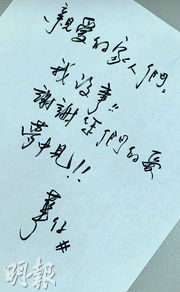 親愛的家人們。
我沒事!!
謝謝你們的愛
夢中見!!
華仔
明報